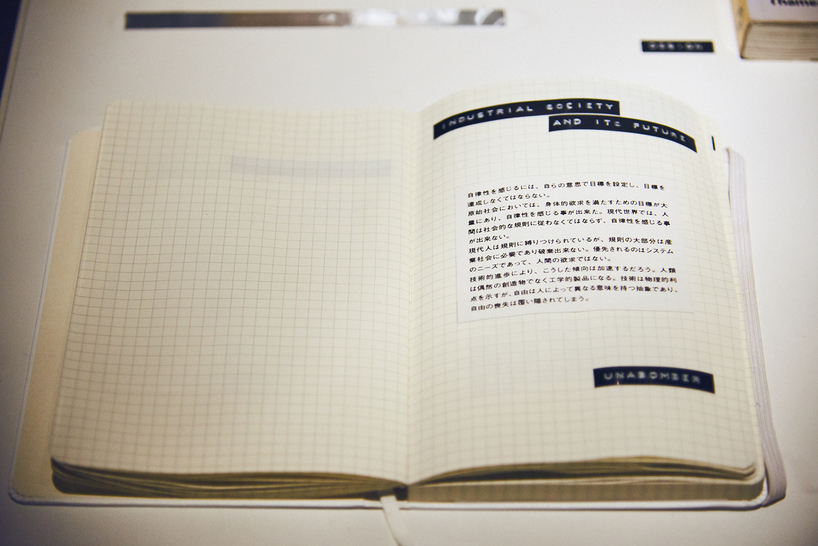 INDUSTRIAL SOCIETY
AND ITS FUTURE
自律性を感じるには、自らの意思で目標を設定し、目標を
達成しなくてはならない。
原始社会においては、身体的欲求を満たすための目標が大
量にあり、自律性を感じる事が出来た。現代世界では、人
間は社会的な規則に従わなくてはならず、自律性を感じる事
が出来ない。
現代人は規則に縛りつけられているが、規則の大部分は産
業社会に必要であり破棄出来ない。優先されるのはシステム
のニーズであって、人間の欲求ではない。
技術的進歩により、こうした傾向は加速するだろう。人類
は偶然の創造物でなく工学的製品になる。技術は物理的利
点を示すが、自由は人によって異なる意味を持つ抽象であり、
自由の喪失は覆い隠されてしまう。
UNABOMBER